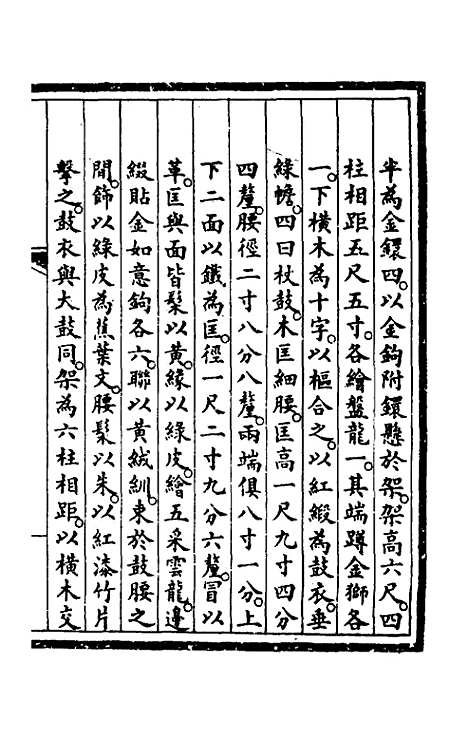 半為金鐶四。以金鉤附鐶懸於架。架高六尺。四
柱相距五尺五寸。各繪盤龍一。其端蹲金獅各
一。下橫木為十字。以樞合之。以紅緞為鼓衣。垂
綠幨。四曰杖鼓。木匡細腰。匡高一尺九寸四分
四釐。腰徑二寸八分八釐。兩端俱八寸一分。上
下二面以鐵為匡。徑一尺二寸九分六釐。冒以
革。匡與面皆髹以黃。緣以綠皮。繪五采雲龍。邊
綴貼金如意鉤各六。聯以黃絨紃。束於鼓腰之
閒。飾以綠皮為蕉葉文。腰髹以朱。以紅漆竹片
擊之。鼓衣與大鼓同。架為六柱相距。以橫木交